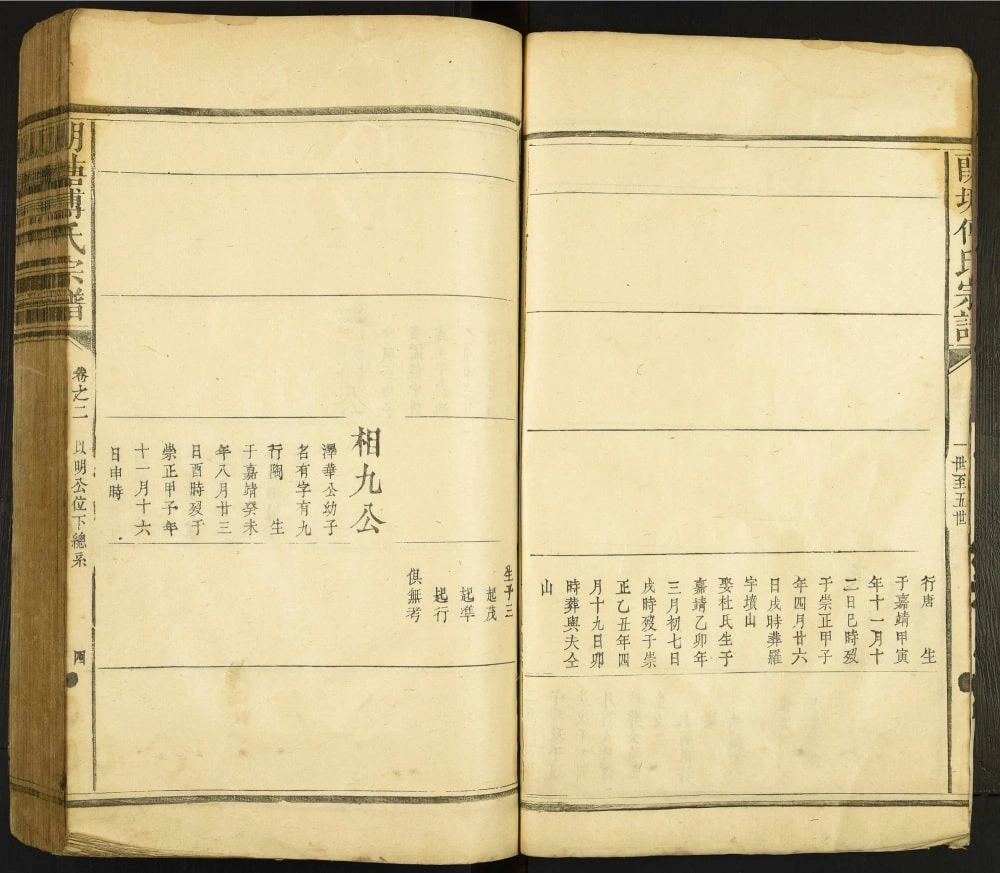 傅氏宗譜
一世至五世
行唐　生
于嘉靖甲寅
年十一月十
二日巳時歿
于崇正甲子
年四月廿六
日戌時葬羅
字墳山
娶杜氏生于
嘉靖乙卯年
三月初七日
戌時歿于崇
正乙丑年四
月十九日卯
時葬與夫仝
山
生子三
起茂
起準
起行
俱無考
相九公
澤華公幼子
名有字有九
行陶　生
于嘉靖癸未
年八月廿三
日酉時歿于
崇正甲子年
十一月十六
日申時
塘傅氏宗譜
卷之二
以明公位下總系
四